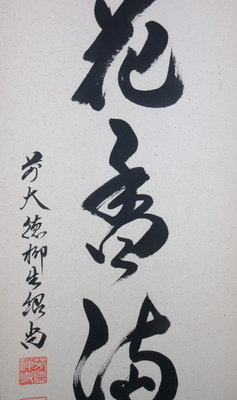 花香満
前大徳柳生紹尚